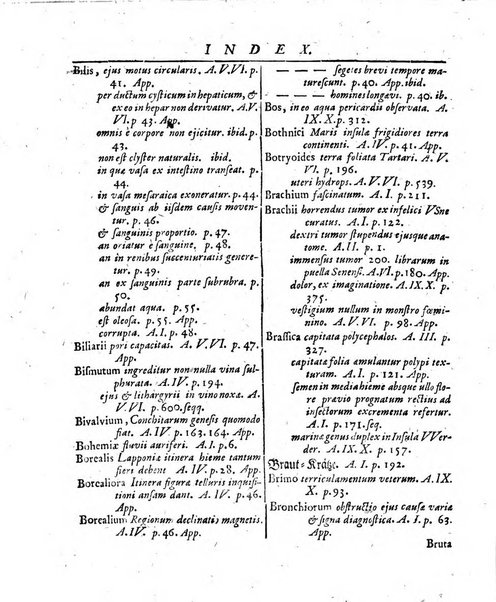 INDEX.
Bilis, ejus motus circularis. A. V. VI. p.
41. App.
per ductum cysticum in hepaticum, &
ex eo in hepar non derivatur. A. V.
VI. p 43. App.
omnis è corpore non ejicitur. ibid. p.
43.
non est clyster naturalis. ibid.
in quæ vasa ex intestino transeat. p.
44.
in vasa mesaraica exoneratur. p. 44.
& sanguis ab iisdem causis moven-
tur. p. 46.
& sanguinis proportio. p. 47.
an oriatur è sanguine. p. 48.
an in renibus succenturiatis genere-
tur. p. 49.
an ex sanguinis parte subrubra. p.
50.
abundat aqua. p. 55.
est oleosa. p. 55. App.
corrupta. A. I. p. 48.
Biliarii pori capacitas. A. V. VI. p. 47.
App.
Bismutum ingreditur non nulla vina sul-
phurata. A. IV. p. 194.
ejus & lithargyrii in vino noxa. A.
V. VI. p. 600. seqq.
Bivalvium, Concharum genesis quomodo
fiat. A. IV. p. 163. 164. App.
Bohemiæ fluvii auriferi. A. I. p. 6.
Borealis Lapponiæ itinera hieme tantum
fieri debent A. IV. p. 28. App.
Borealiora Itinera figura telluris inquisi-
tioni ansam dant. A. IV. p. 46.
App.
Borealium Regionum declinatio magnetis.
A. IV. p. 46. App.
— — — segetes brevi tempore ma-
turescunt. p. 40. App. ibid.
— — — homines longævi. p. 40. ib.
Bos, in eo aqua pericardii observata. A.
IX. X. p. 312.
Bothnici Maris insulæ frigidiores terra
continenti. A. IV. p. 41. App.
Botryoides terra foliata Tartari. A. V.
VI. p. 196.
uteri hydrops. A. V. VI. p. 539.
Brachium fascinatum. A. I. p. 211.
Brachii horrendus tumor ex infelici VSne
curatus. A. I. p. 23.
dextri tumor stupendus ejusque anato-
me. A. II. p. 1.
immensus tumor 200. librarum in
puella Senensi. A. VI. p. 190. App.
dolor, ex imaginatione. A. IX. X. p.
375.
vestigium nullum in monstro fœmi-
nino. A. V. VI. p. 98. App.
Brassica capitata polycephalos. A. III. p.
327.
capitata folia amulantur polypi tex-
turam. A. I. p. 122. App.
semen in media hieme absque ullo flo-
re prævio prognatum rectius ad
insectorum excrementa refertur.
A. I. p. 171. seq.
marinæ genus duplex in Insula VVer-
der. A. IX. X. p. 157.
Braut-Krätze. A. I. p. 192.
Brimo terriculamentum veterum. A. IX.
X. p. 93.
Bronchiorum obstructio ejus causæ variæ
& signa diagnostica. A. I. p. 63.
App.
Bruta